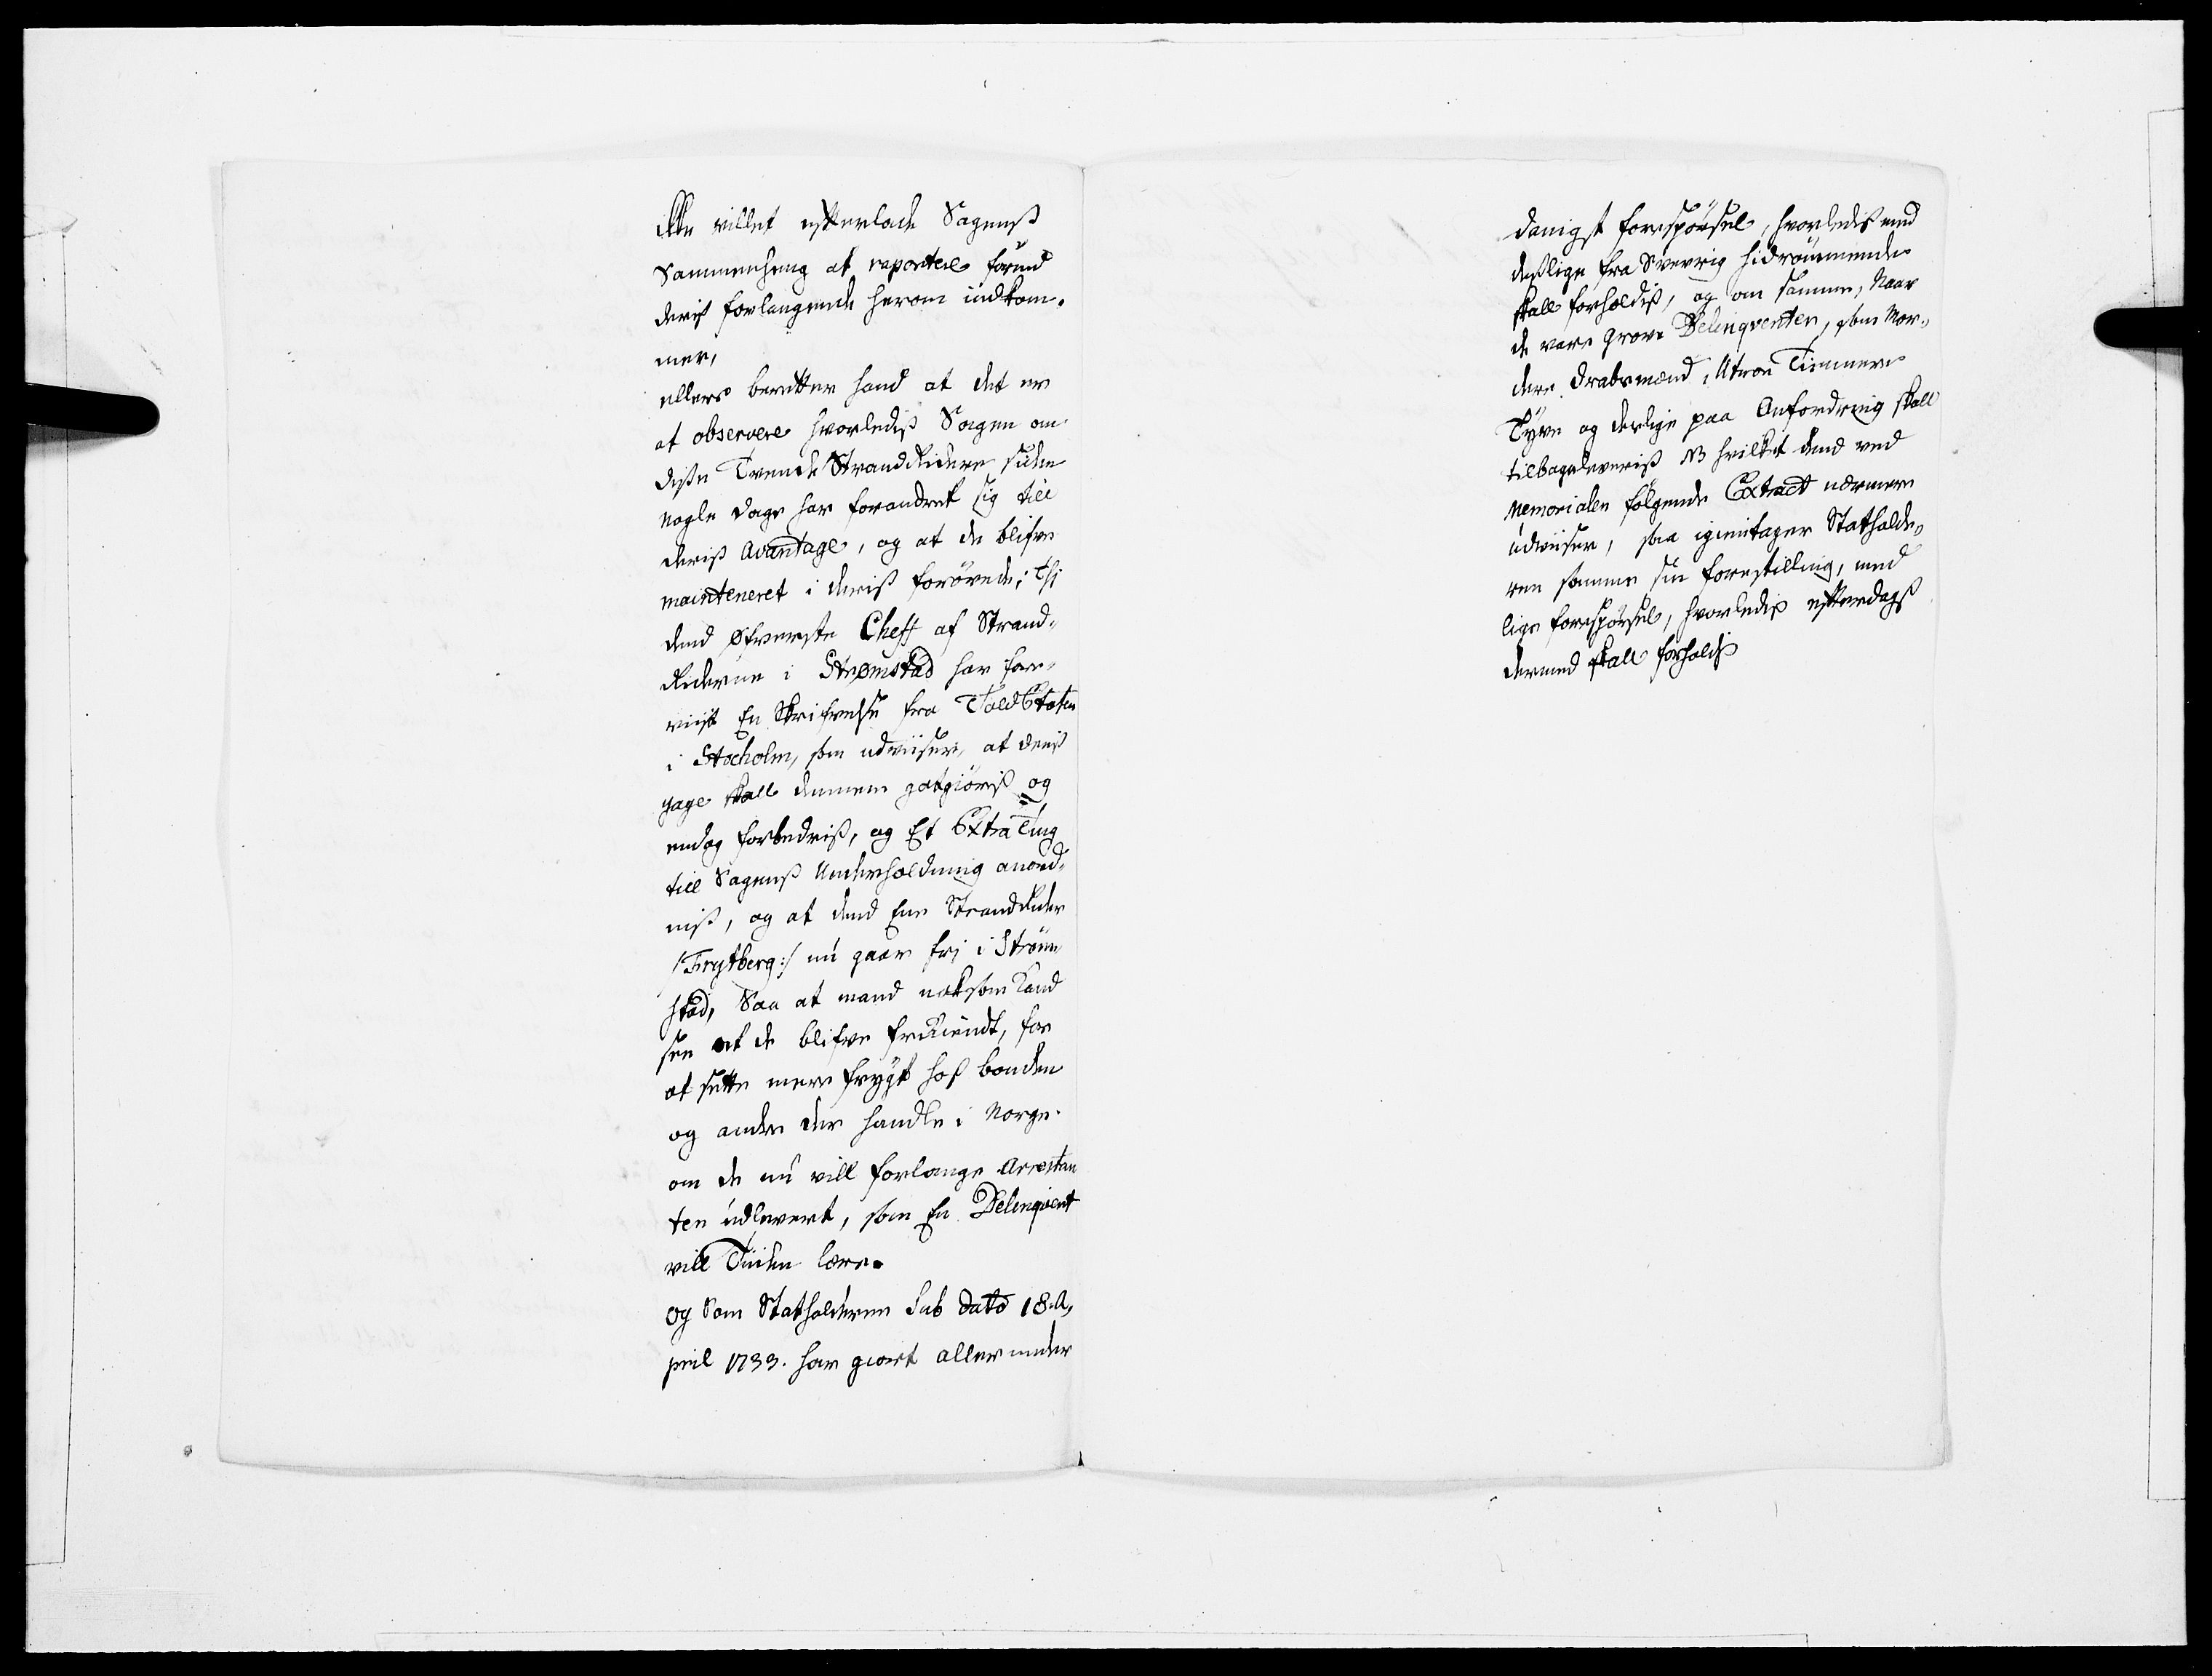 icke villet efterlade Sagenß
Sammenheng at raportere forind
deriß forlangende herom indkom-
mer,
ellers beretter hand at det er
at observere hvorlediß Sagen om
disse Trende StrandRidere siden
nogle dage har forandret sig till
deriß avantage, og at de blifve
mainteneret i deriß forøvede; thi
dend Øfverste Cheff af Strand-
Riderne i Strømstad har for-
viist En Skrifvelse fra ToldEtaten
i Stocholm, som udviiser, at deriß
gage skall dennem gotgiøriß og
endog forbedriß, og Et Extra Ting
till Sagenß Underholdning anord-
niß, og at dend Ene StrandRider
/:Frytberg:/ nu gaar fri i Strøm-
stad, Saa at mand noksom Kand
see at de blifve friKiendt, for
at sette mere frygt hos bonden
og andre der handle i Norge.
om de nu vill forlange Arrestan
ten udlevert, som En Delinqvent
vill Tiiden lære.
Og Som Statholderen Sub dato 18. A-
pril 1733. har giort allerunder
danigst forespørsel, hvorlediß med
desslige fra Sverrig hidrømmende
skall forholdiß, og om samme, Naar
de vare grove Delinqventer, som Mor-
dere, Drabsmænd, Utroe Tiennere
Tyve og deslige paa Anfordring skall
tilbageleveriß NB hvilket dend ved
Memorialen følgende Extract nærmere
udviiser, saa igientager Statholde-
ren samme sin forestilling, med
lige forespørsel, hvorlediß efterdagß
dermed skall forholdiß